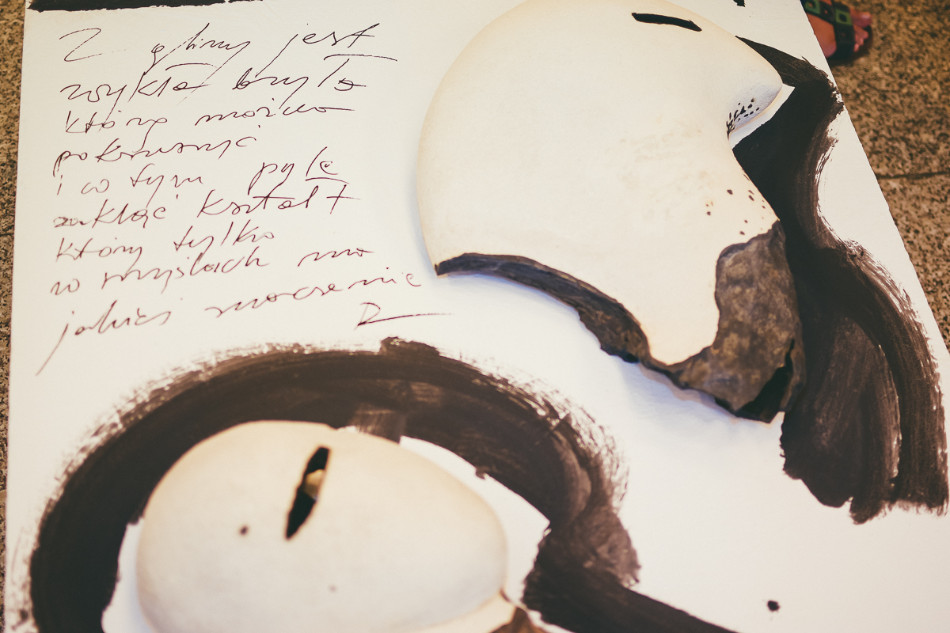 Z gliny jest
zwykła bryła
którą można
pokruszyć
i w tym pyle
zakląć kształt
który tylko
w myślach ma
jakieś znaczenie